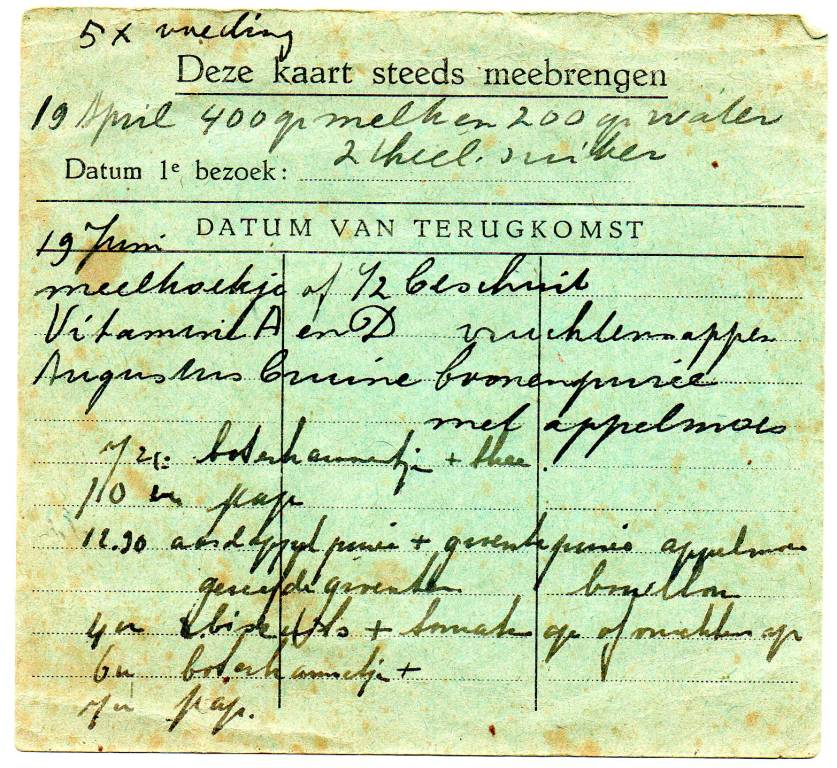 5x voeding
Deze kaart steeds meebrengen
19 April 400 gr melk en 200 gr water
2 theel. suiker
Datum 1e bezoek:
DATUM VAN TERUGKOMST
19 Juni
meelkoekje of 1/2 beschuit
Vitamine A en D vruchtensappen
Augustus bruine bonenpurée
met appelmoes
7 boterhammetje + thee
10 u pap
12.30 aardappel purée + groente purée appelmoes
groenten bouillon
4 u biscuits + tomaten sap of vruchten sap
6u boterhammetje +
7u pap.